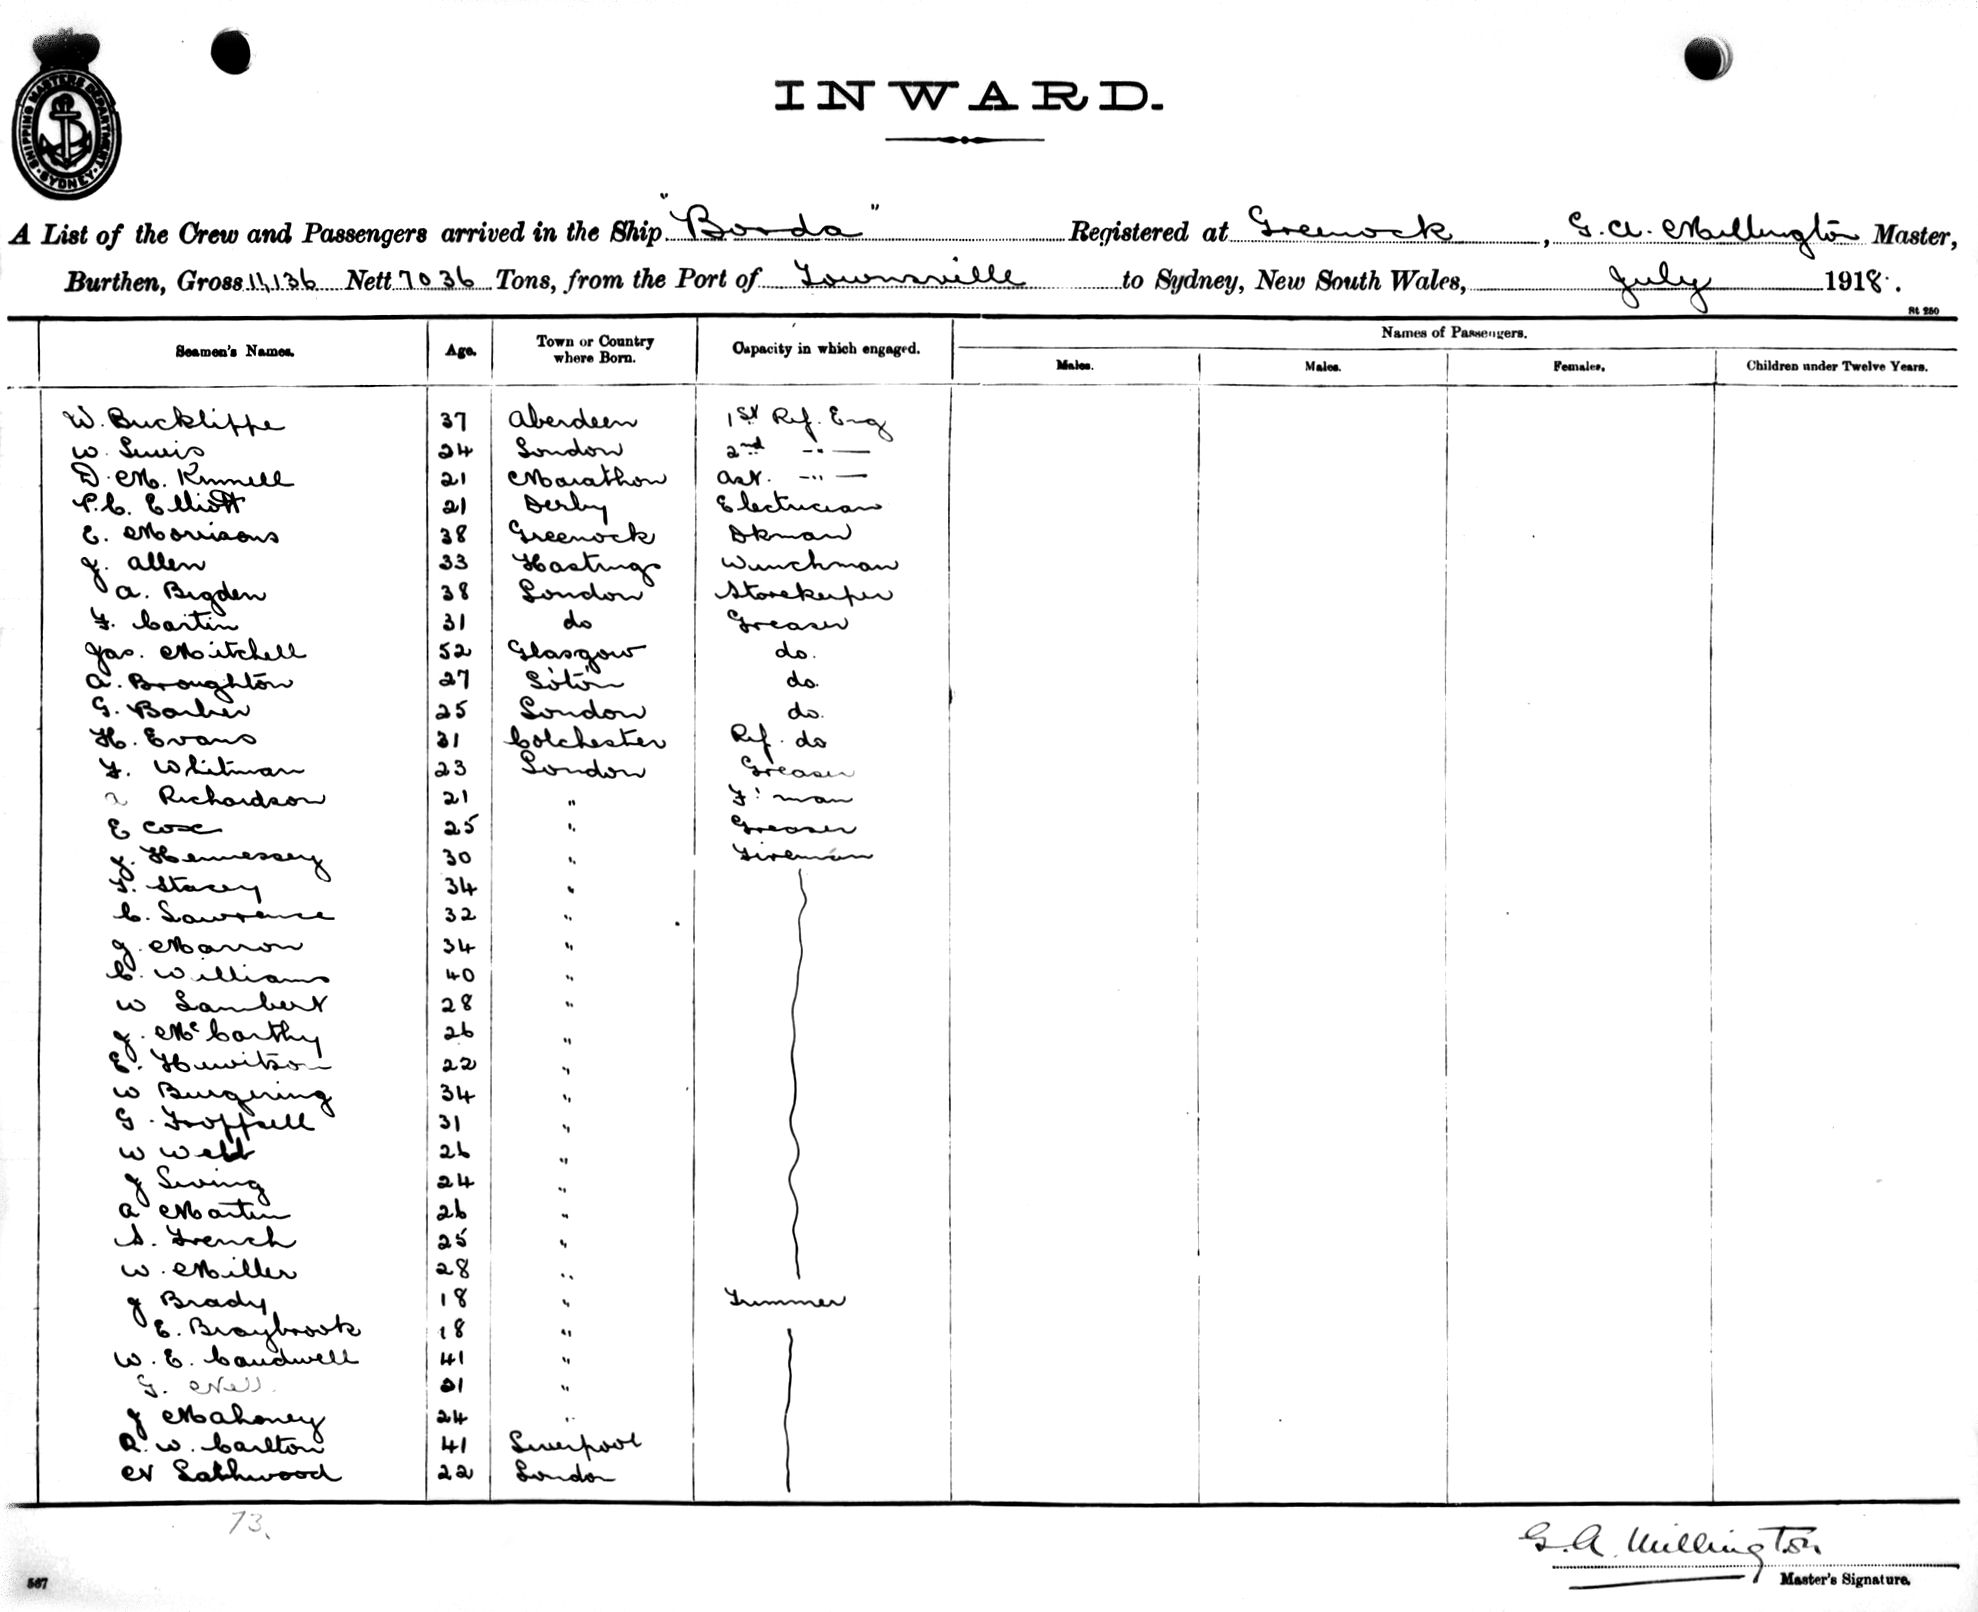 SHIPPING MASTERS DEPARTMENT SYDNEY
INWARD.
A List of the Crew and Passengers arrived in the Ship "Borda" Registered at Greenock, G. A. Millington Master,
Burthen, Gross 11,136 Nett 7036 Tons, from the Port of Townsville to Sydney, New South Wales, July 1918.
St 250
Seamen's Names. Age. Town or Country where Born. Capacity in which engaged. Names of Passengers.
Males. Males. Females. Children under Twelve Years.
W. Bucklippe 37 Aberdeen 1st Ref. Eng
W. Lewis 24 London 2nd -"-
D. M. Kinnell 21 Marathon Ast. -"-
P. C. Elliott 21 Derby Electrician
E. Morrisons 38 Greenock Dkman
J. Allen 33 Hastings Winchman
A. Bigden 38 London Storekeeper
F. Cartin 31 do Greaser
Jas. Mitchell 52 Glasgow do.
A. Broughton 27 So'ton do.
G. Barber 25 London do.
H. Evans 31 Colchester Ref. do
F. Whitman 23 London Greaser
Richardson 21 " F'man
E Cox 25 " Greaser
J. Hennessey 30 " Fireman
T. Stacey 34 "
C. Lawrence 32 "
J. Marron 34 "
C. Williams 40 "
W Lambert 28 "
J. McCarthy 26 "
E. Hewitson 22 "
W Burgering 34 "
G. 31 "
W Webb 26 "
J 24 "
A Martin 26 "
S. French 25 "
W. Miller 28 "
J Brady 18 " Trimmer
E. Braybrook 18 "
W. E. Caudwell 41 "
G. Nell 21 "
J Mahoney 24 "
R. W. Carlton 41 Liverpool
N Lathwood 22 London
73.
G. A. Millington
Master's Signature.
567